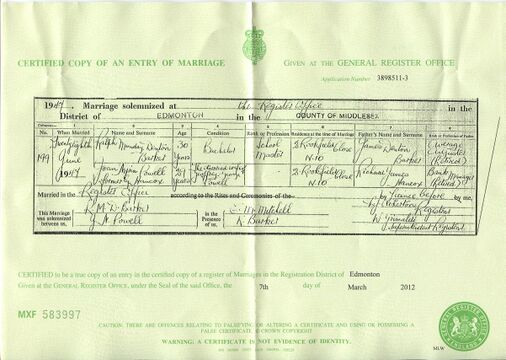 CERTIFIED COPY OF AN ENTRY OF MARRIAGE
GIVEN AT THE GENERAL REGISTER OFFICE
Application Number 3898511-3
1947. Marriage solemnized at the Register Office in the
District of EDMONTON in the COUNTY OF MIDDLESEX
No. When Married Name and Surname Age Condition Rank or Profession Residence at the time of Marriage Father's Name and Surname Rank or Profession of Father
199 Twentyeighth June 1947
Ralph Monday Denton Barker 30 years Bachelor School Master 2 Rookfield Close N.10 James Denton Barker (Retired)
Joan Powell formerly Hancox 29 years Powell 2 Rookfield Close N.10 Richard James Hancox Bank Manager (Retired)
Married in the Register Office according to the Rites and Ceremonies of the by Licence before by me,
This Marriage was solemnized between us,
R. M. D. Barker
J. A. Powell
in the Presence of us,
Mitchell
K. Barker
Registrar
Superintendent Registrar
CERTIFIED to be a true copy of an entry in the certified copy of a register of Marriages in the Registration District of Edmonton
Given at the GENERAL REGISTER OFFICE, under the Seal of the said Office, the 7th day of March 2012
MXF 583997
CAUTION: THERE ARE OFFENCES RELATING TO FALSIFYING OR ALTERING A CERTIFICATE AND USING OR POSSESSING A FALSE CERTIFICATE © CROWN COPYRIGHT
WARNING: A CERTIFICATE IS NOT EVIDENCE OF IDENTITY.
GENERAL REGISTER OFFICE
ENGLAND
MLW